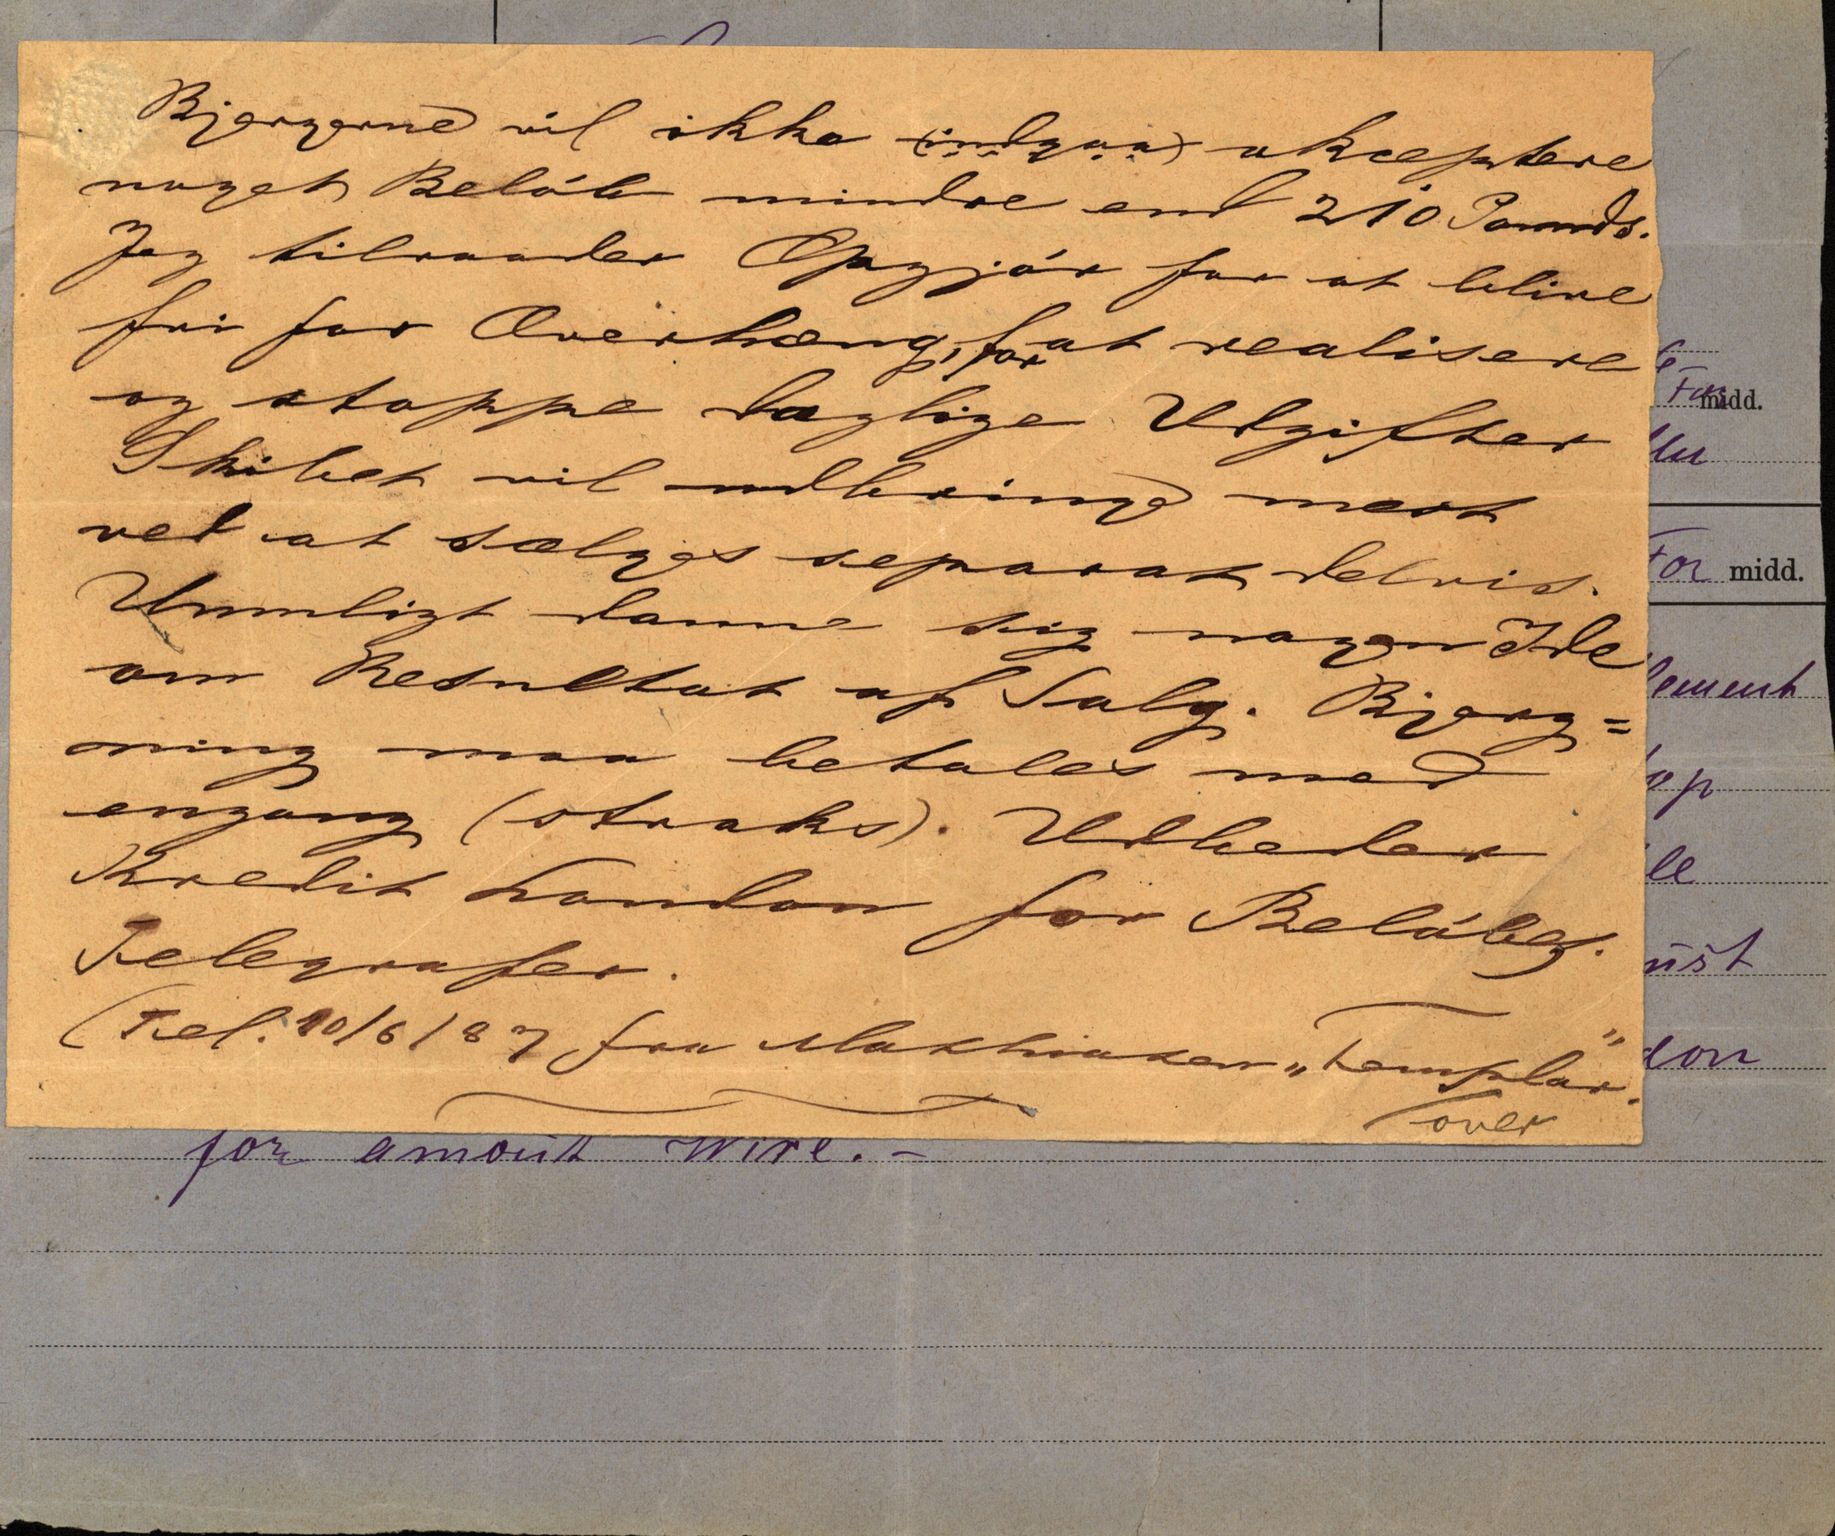 Bjergerne vil ikke (indgaa) akceptere
noget Beløb mindre end 210 Pounds.
Jeg tilraader Opgjør for at blive
fri for Overhæng, for at realisere
og stoppe daglige Udgifter
Skibet vil indbringe mest
ved at sælges separat delvis.
Umuligt danne sig nogen Ide
om Resultat af Salg. Bjerg=
ning maa betales med
engang (straks). Udbeder
Kredit London for Beløbet.
Telegrafer.
(Tel. 10/6/87 fra „Templar“.
over
midd.
For midd.
for amount wire. –